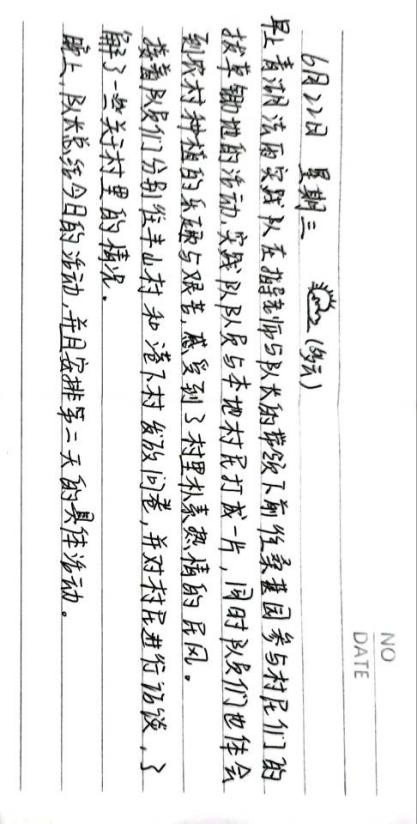 NO
DATE
6月22日 星期三 (多云)
早上青湖法雨实践队在指导老师与队长的带领下前往桑葚园参与村民们的
拔草锄地的活动,实践队队员与本地村民打成一片,同时队员们也体会
到农村种植的乐趣与艰苦,感受到了村里朴素热情的民风。
接着队员们分别往丰山村和港下村发放问卷,并对村民进行访谈,了
解了一些关于村里的情况。
晚上,队长总结今日的活动,并且安排第二天的具体活动。